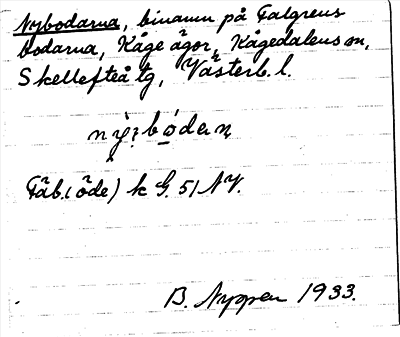 Nybodarna, binamn på Falgrens
bodarna, Kåge ägor, Kågedalens sn,
Skellefteå tg, Västerb. l.
Fäb. (öde) k G. 51 NV.
B. Nyppen 1933.